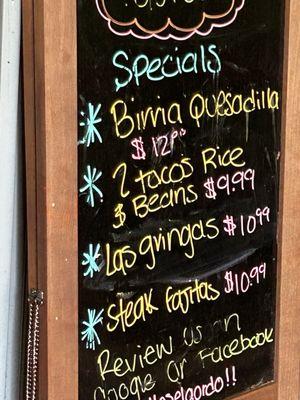 Specials
* Birria Quesadilla
$12.99
* 2 tacos Rice
$ Beans $9.99
* Las gringas $10.99
* Steak fajitas $10.99
Review us on
Google or Facebook